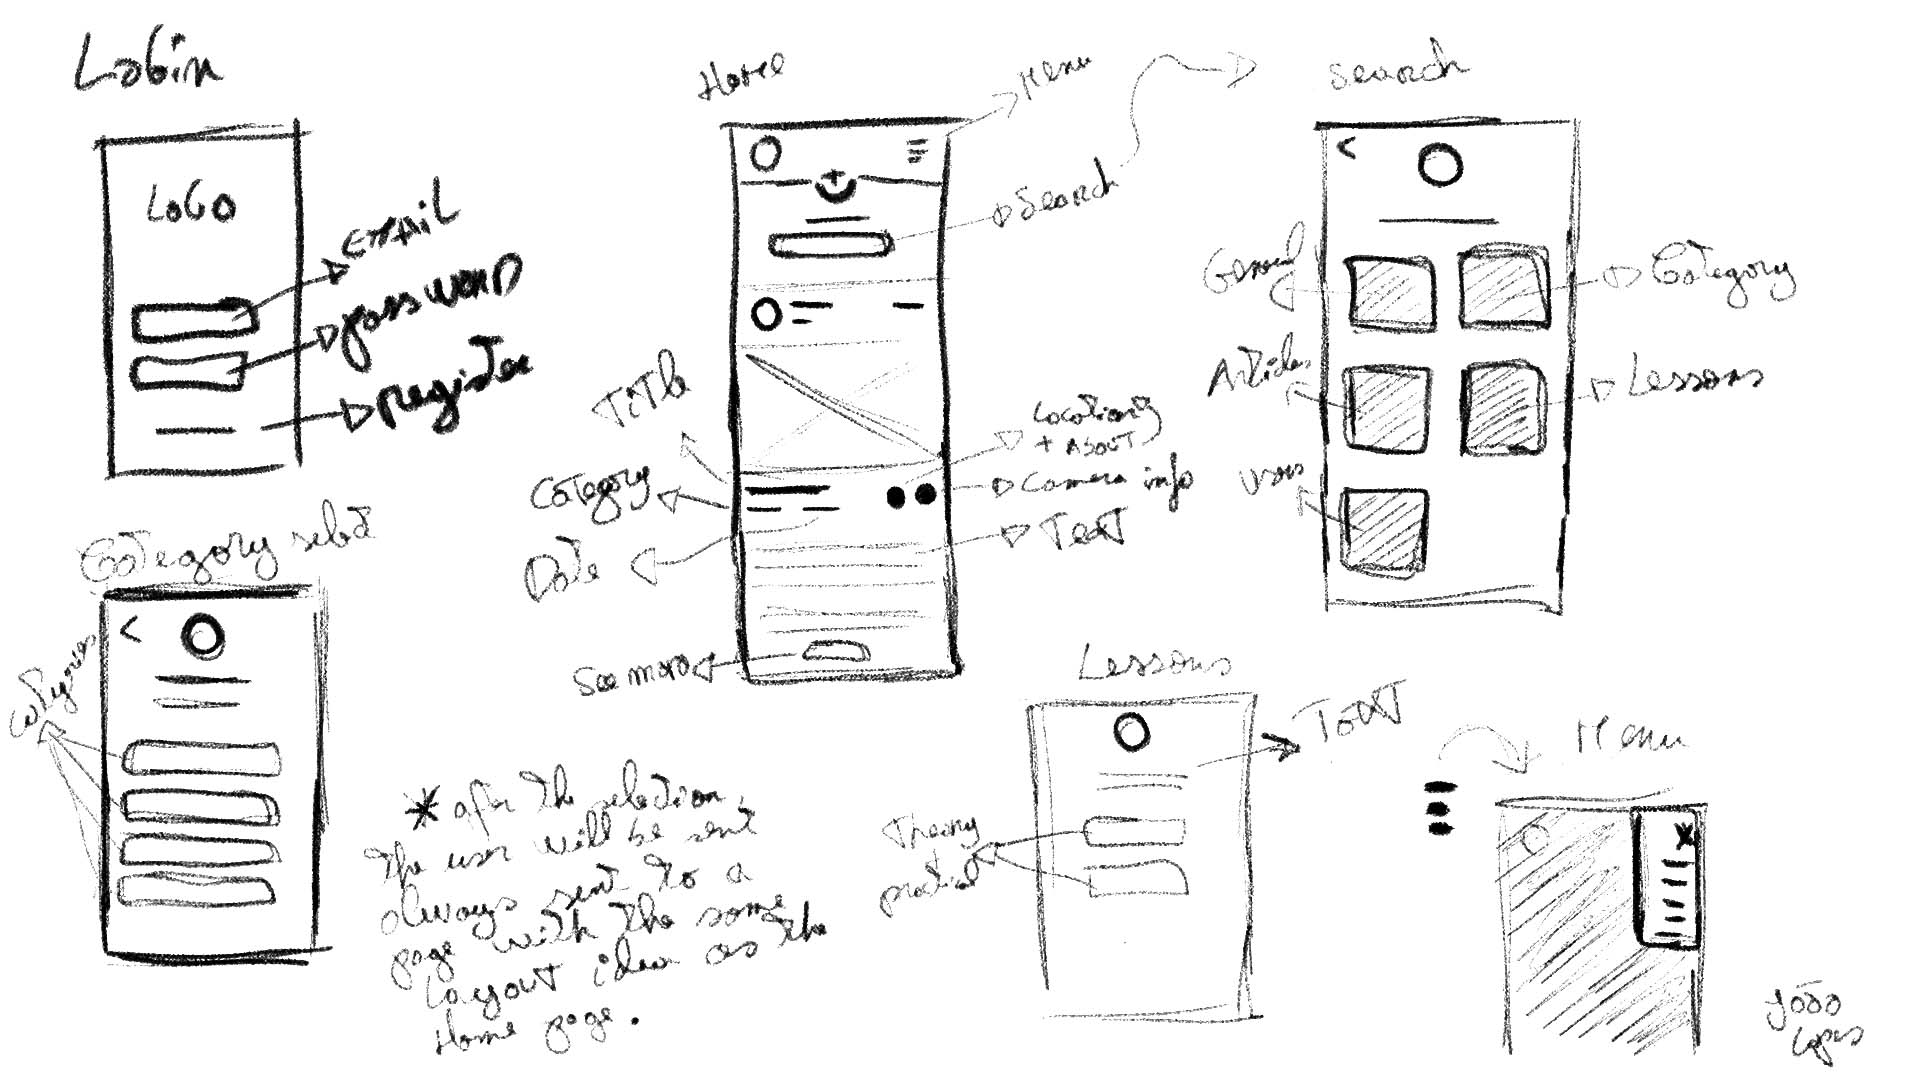 Login
LOGO
EMAIL
password
register
Home
Menu
Search
Title
Category
Date
See more
Location
+ About
Camera info
Text
Search
General
Category
Articles
Lessons
Users
Category select
categories
* after the selection,
the user will be sent
always sent to a
page with the same
layout idea as the
Home page.
Lessons
Text
Theory
practical
Menu
João
Lopes